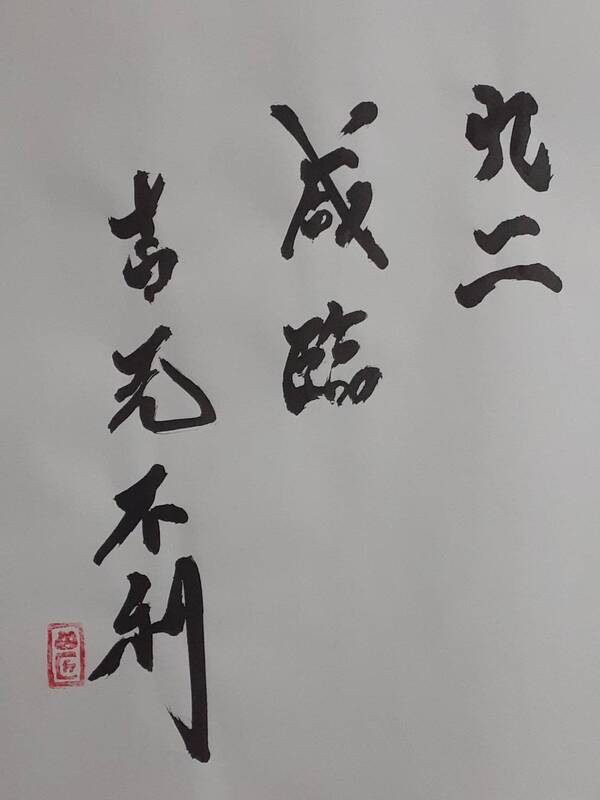 九二
咸臨
吉无不利